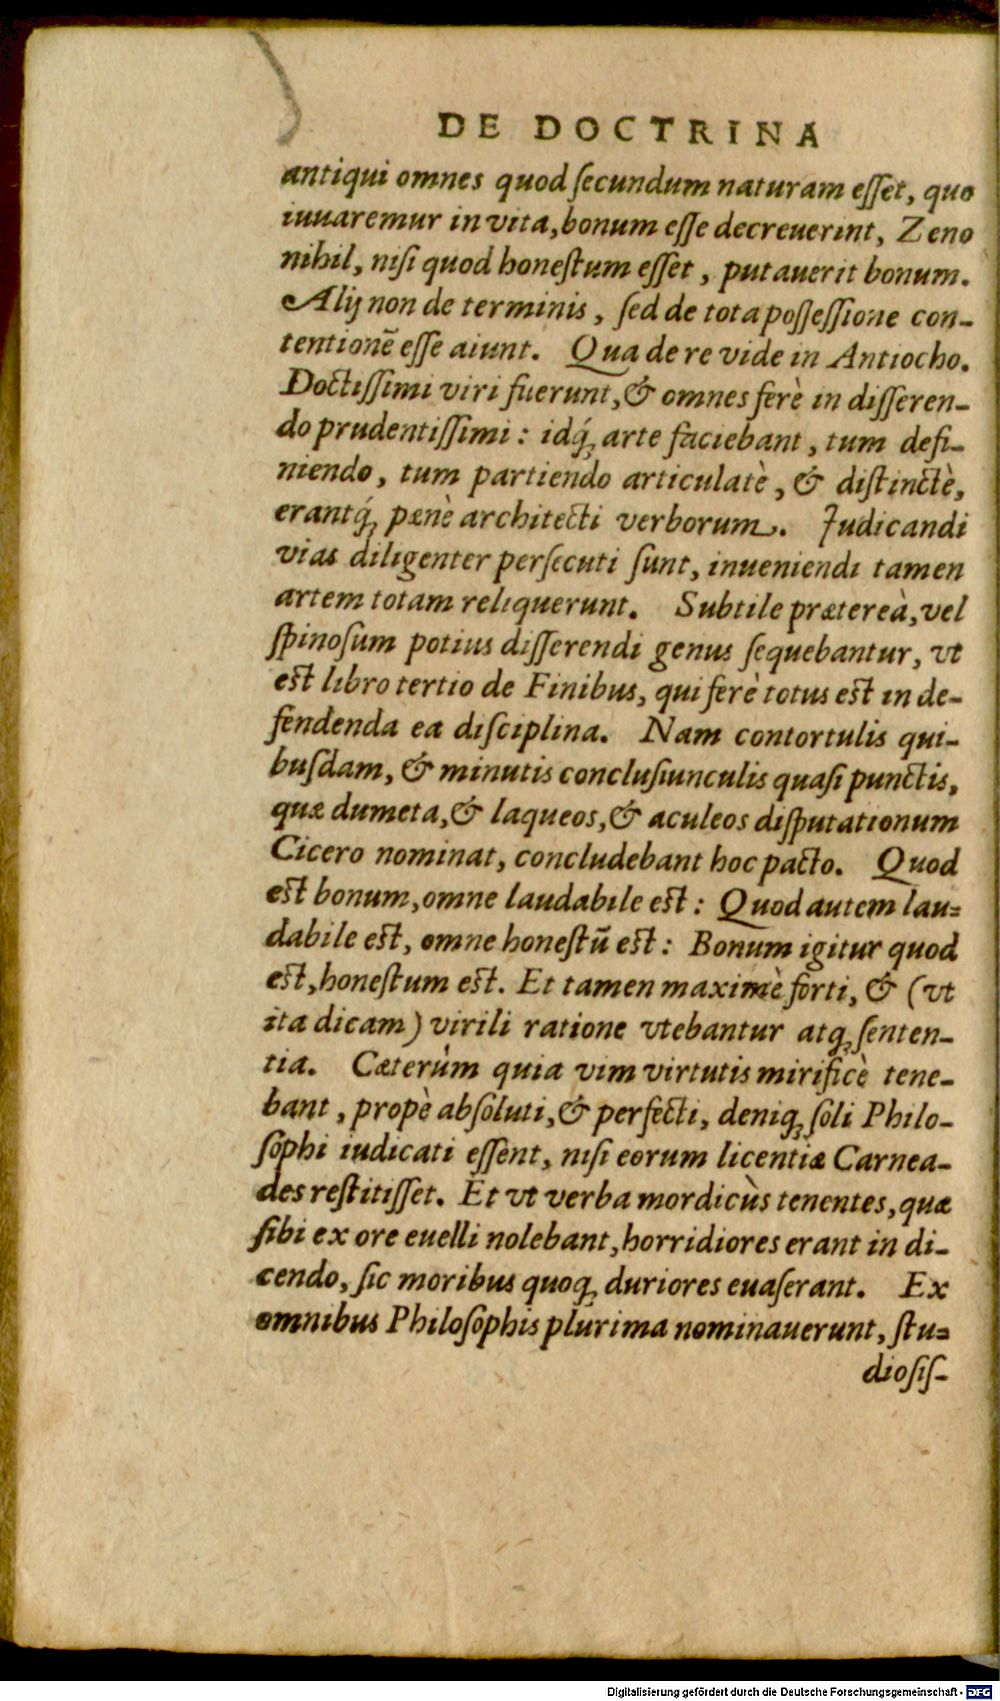 DE DOCTRINA
antiqui omnes quod ſecundum naturam eſſet, quo
iuuaremur in vita, bonum eſſe decreuerint, Zeno
nihil, niſi quod honeſtum eſſet, putauerit bonum.
Alij non de terminis, ſed de tota poſſeſſione con-
tentionẽ eſſe aiunt. Qua de re vide in Antiocho.
Doctiſſimi viri fuerunt, & omnes ferè in diſſeren-
do prudentiſſimi: idq́; arte faciebant, tum defi-
niendo, tum partiendo articulatè, & diſtinctè,
erantq́; pænè architecti verborum. Iudicandi
vias diligenter perſecuti ſunt, inueniendi tamen
artem totam reliquerunt. Subtile prætereà, vel
ſpinoſum potius diſſerendi genus ſequebantur, vt
eſt libro tertio de Finibus, qui ferè totus eſt in de-
fendenda ea diſciplina. Nam contortulis qui-
buſdam, & minutis concluſiunculis quaſi punctis,
quæ dumeta, & laqueos, & aculeos diſputationum
Cicero nominat, concludebant hoc pacto. Quod
eſt bonum, omne laudabile eſt: Quod autem lau-
dabile eſt, omne honeſtũ eſt: Bonum igitur quod
eſt, honeſtum eſt. Et tamen maximè forti, & (vt
ita dicam) virili ratione vtebantur atq; ſenten-
tia. Cæterùm quia vim virtutis mirificè tene-
bant, propè abſoluti, & perfecti, deniq; ſoli Philo-
ſophi iudicati eſſent, niſi eorum licentiæ Carnea-
des reſtitiſſet. Et vt verba mordicùs tenentes, quæ
ſibi ex ore euelli nolebant, horridiores erant in di-
cendo, ſic moribus quoq; duriores euaſerant. Ex
omnibus Philoſophis plurima nominauerunt, ſtu-
dioſiſ-
Digitalisierung gefördert durch die Deutsche Forschungsgemeinschaft - DFG